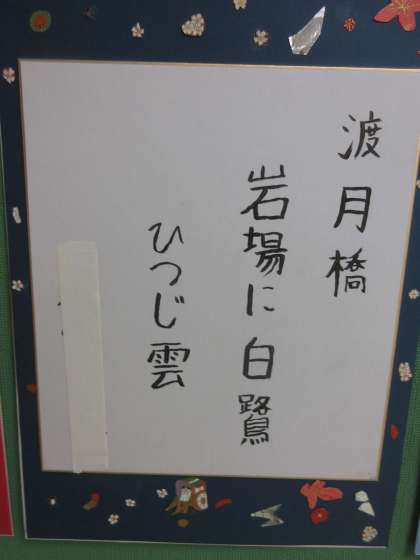 渡月橋
岩場に白鷺
ひつじ雲